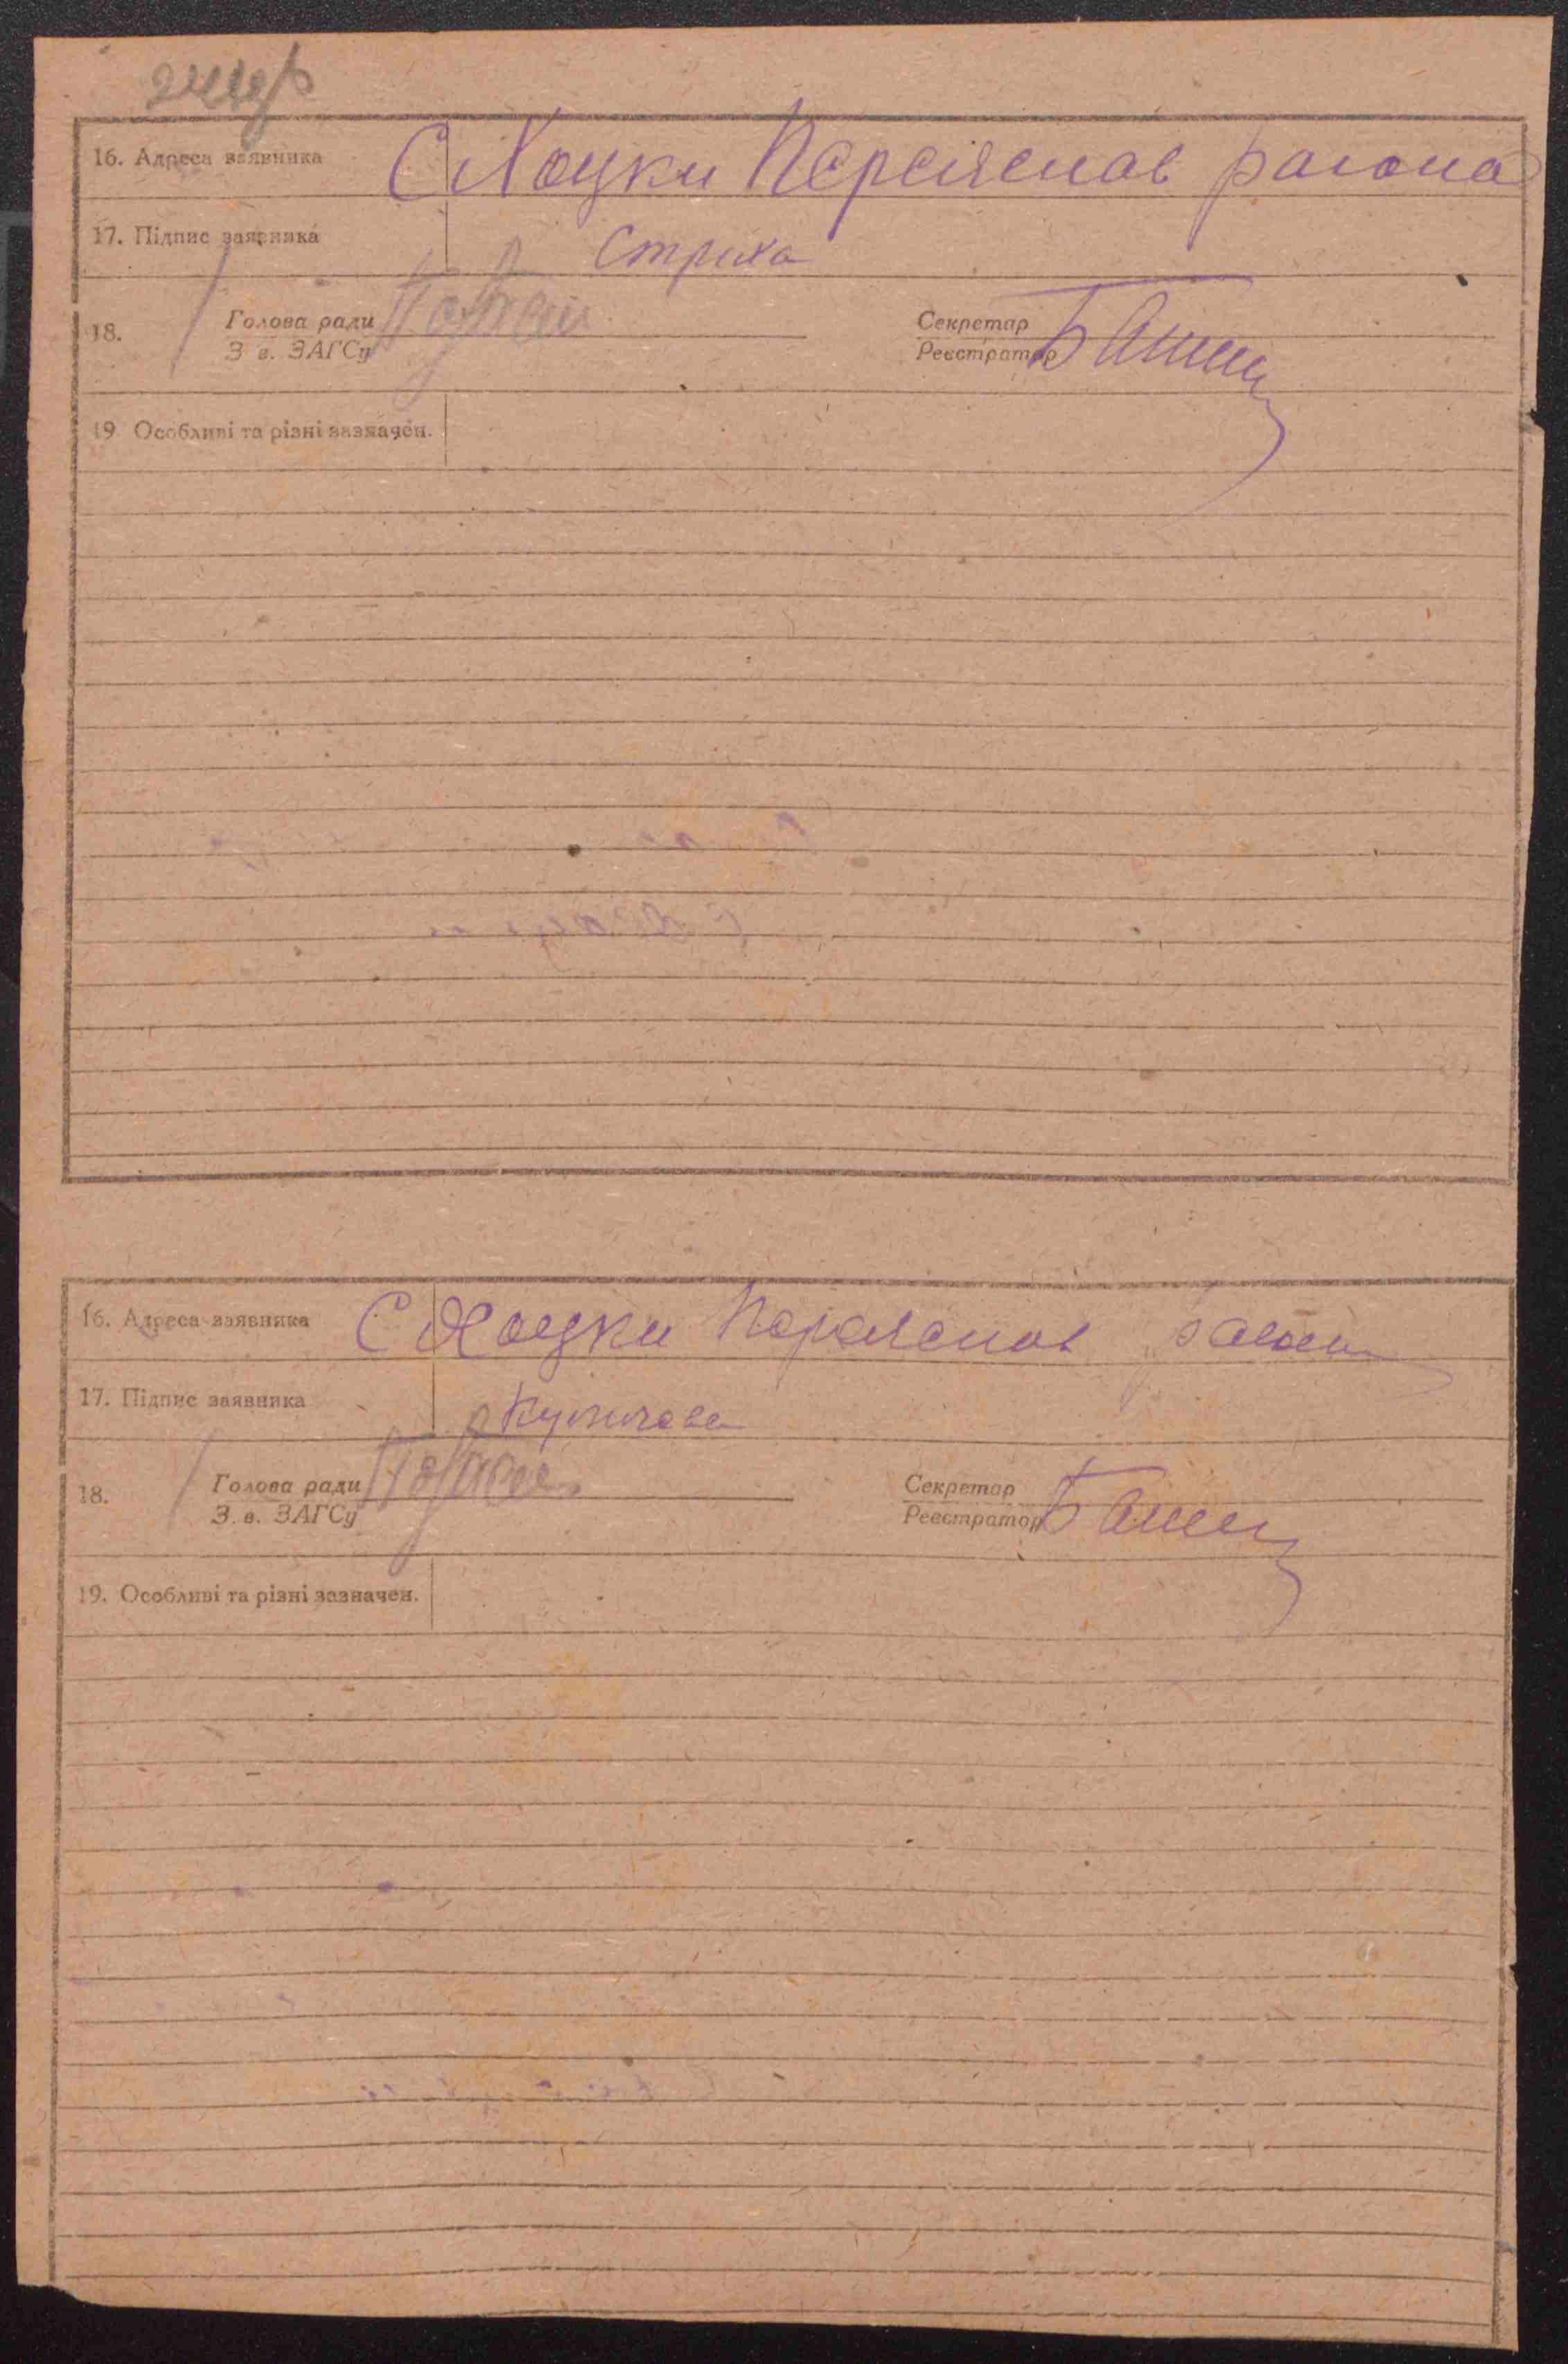 16. Адреса заявника С Хоцки Переяслав района
17. Підпис заявника Стриха
18. Голова ради Секретар
З в. ЗАГСу Реєстратор
19 Особливі та різні зазначен.
16. Адреса заявника С Хоцки Переяслав район
17. Підпис заявника
18. Голова ради Секретар
З. в. ЗАГСу Реєстратор
19. Особливі та різні зазначен.